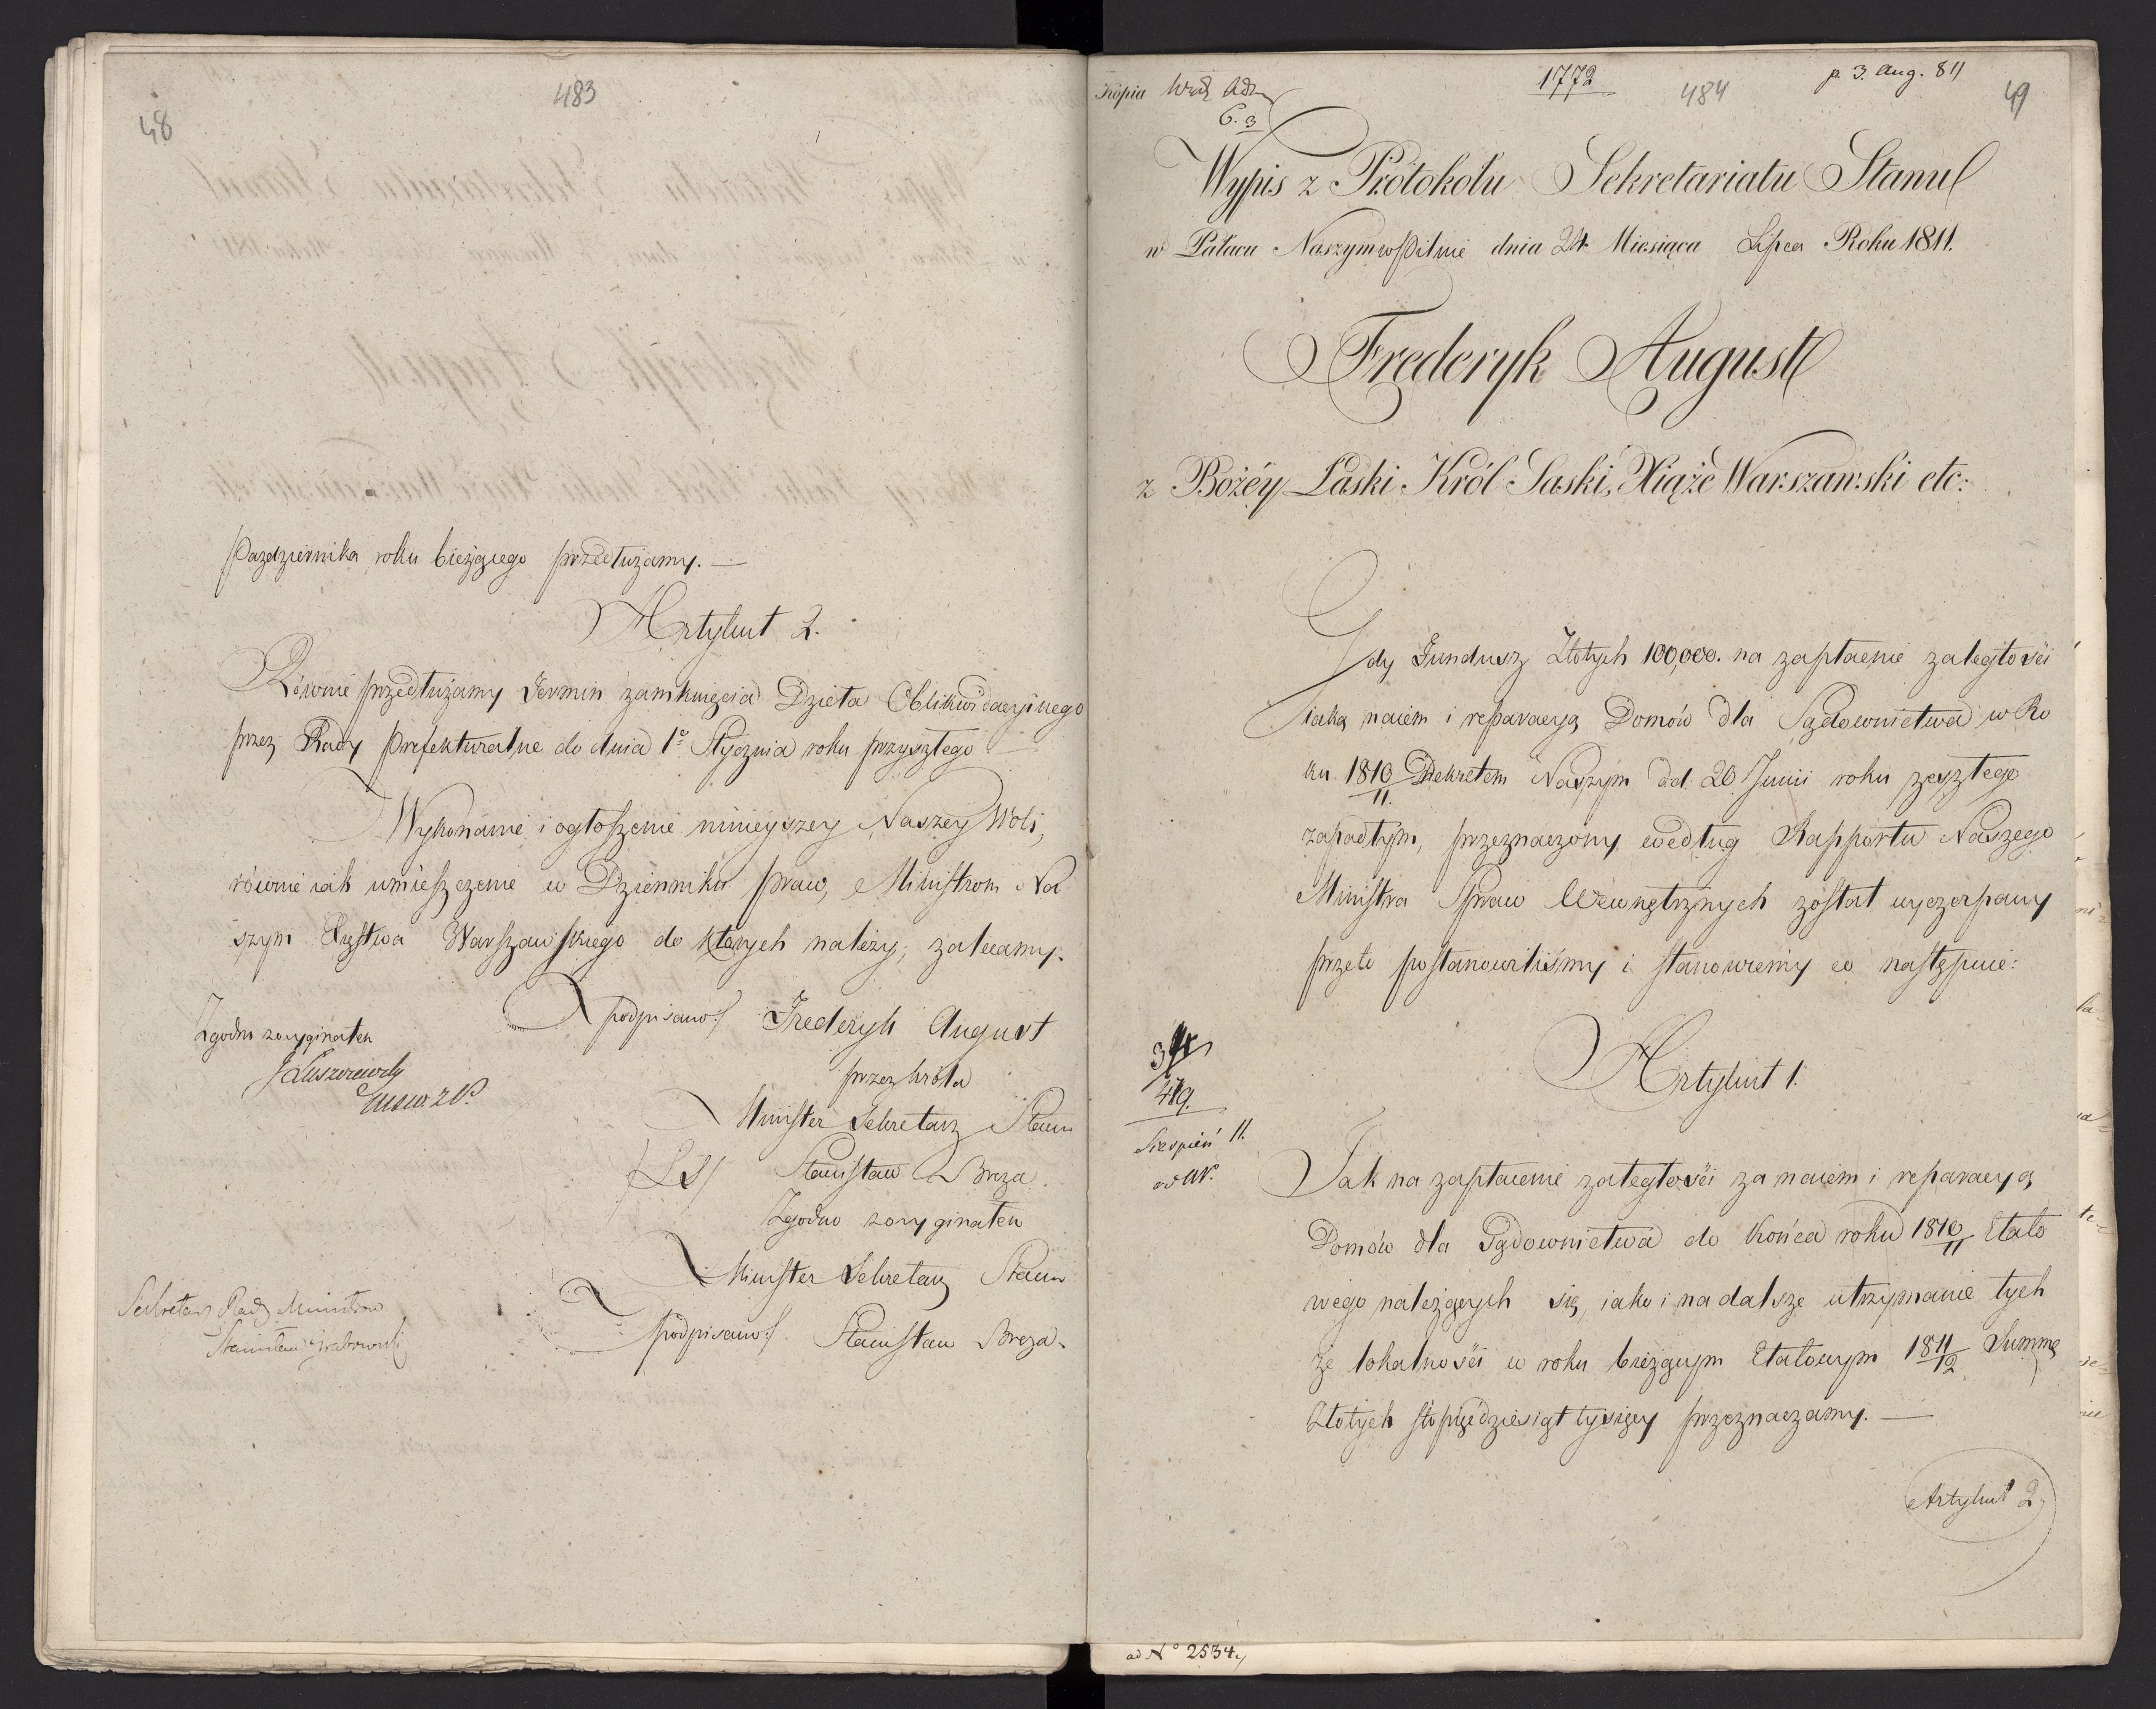 483
48
Pazdziernika roku bieżącego przedłużamy. —
Artykuł 2.
Równie przedłużamy Termin zamknięcia Dzieła Oblikwidacyinego
przez Rady Prefekturalne do dnia 1o Stycznia roku przyszłego —
Wykonanie i ogłoszenie ninieyszey Naszey Woli,
równie iak umieszczenie w Dzienniku praw, Ministrom Na
szym Xięstwa Warszawskiego do których należy, zalecamy.
podpisano/ Frederyk August
Zgodno z oryginałem
J Łuszczewski
przez króla
Minister Sekretarz Stanu
/LS/ Stanisław Breza.
Zgodno z oryginałem
Minister Sekretarz Stanu
podpisano/. Stanisław Breza.
Sekretarz Rady Ministrow
Stanisław Grabowski
Kopia
1772
484
p. 3. Aug. 811
49
6. 3
Wypis z Protokołu Sekretariatu Stanu
w Pałacu Naszym w Pilnie dnia 24. Miesiąca Lipca Roku 1811.
Frederyk August
z Bożéy Łaski Król Saski, Xiąże Warszawski etc:
Gdy Fundusz Złotych 100,000. na zapłacenie zaległości
iaką naiem i reparacyą Domów dla Sądownictwa w Ro
ku 1810/11. Dekretem Naszym dd. 20 Junii roku zeszłego
zapadłym, przeznaczony według Rapportu Naszego
Ministra Spraw Wewnętrznych został wyczerpany
przeto postanowiliśmy i stanowiemy co następuie:
Artykuł 1.
479.
Sierpień 11.
Jak na zapłacenie zaległości za naiem i reparacyą
Domów dla Sądownictwa do Końca roku 1810/11 Etato
wego należących się, iako i na dalsze utrzymanie tych
że lokalności w roku bieżącym Etatowym 1811/12 Summę
Złotych stopięćdziesiąt tysięcy przeznaczamy. —
Artykuł 2.
ad No 2534.